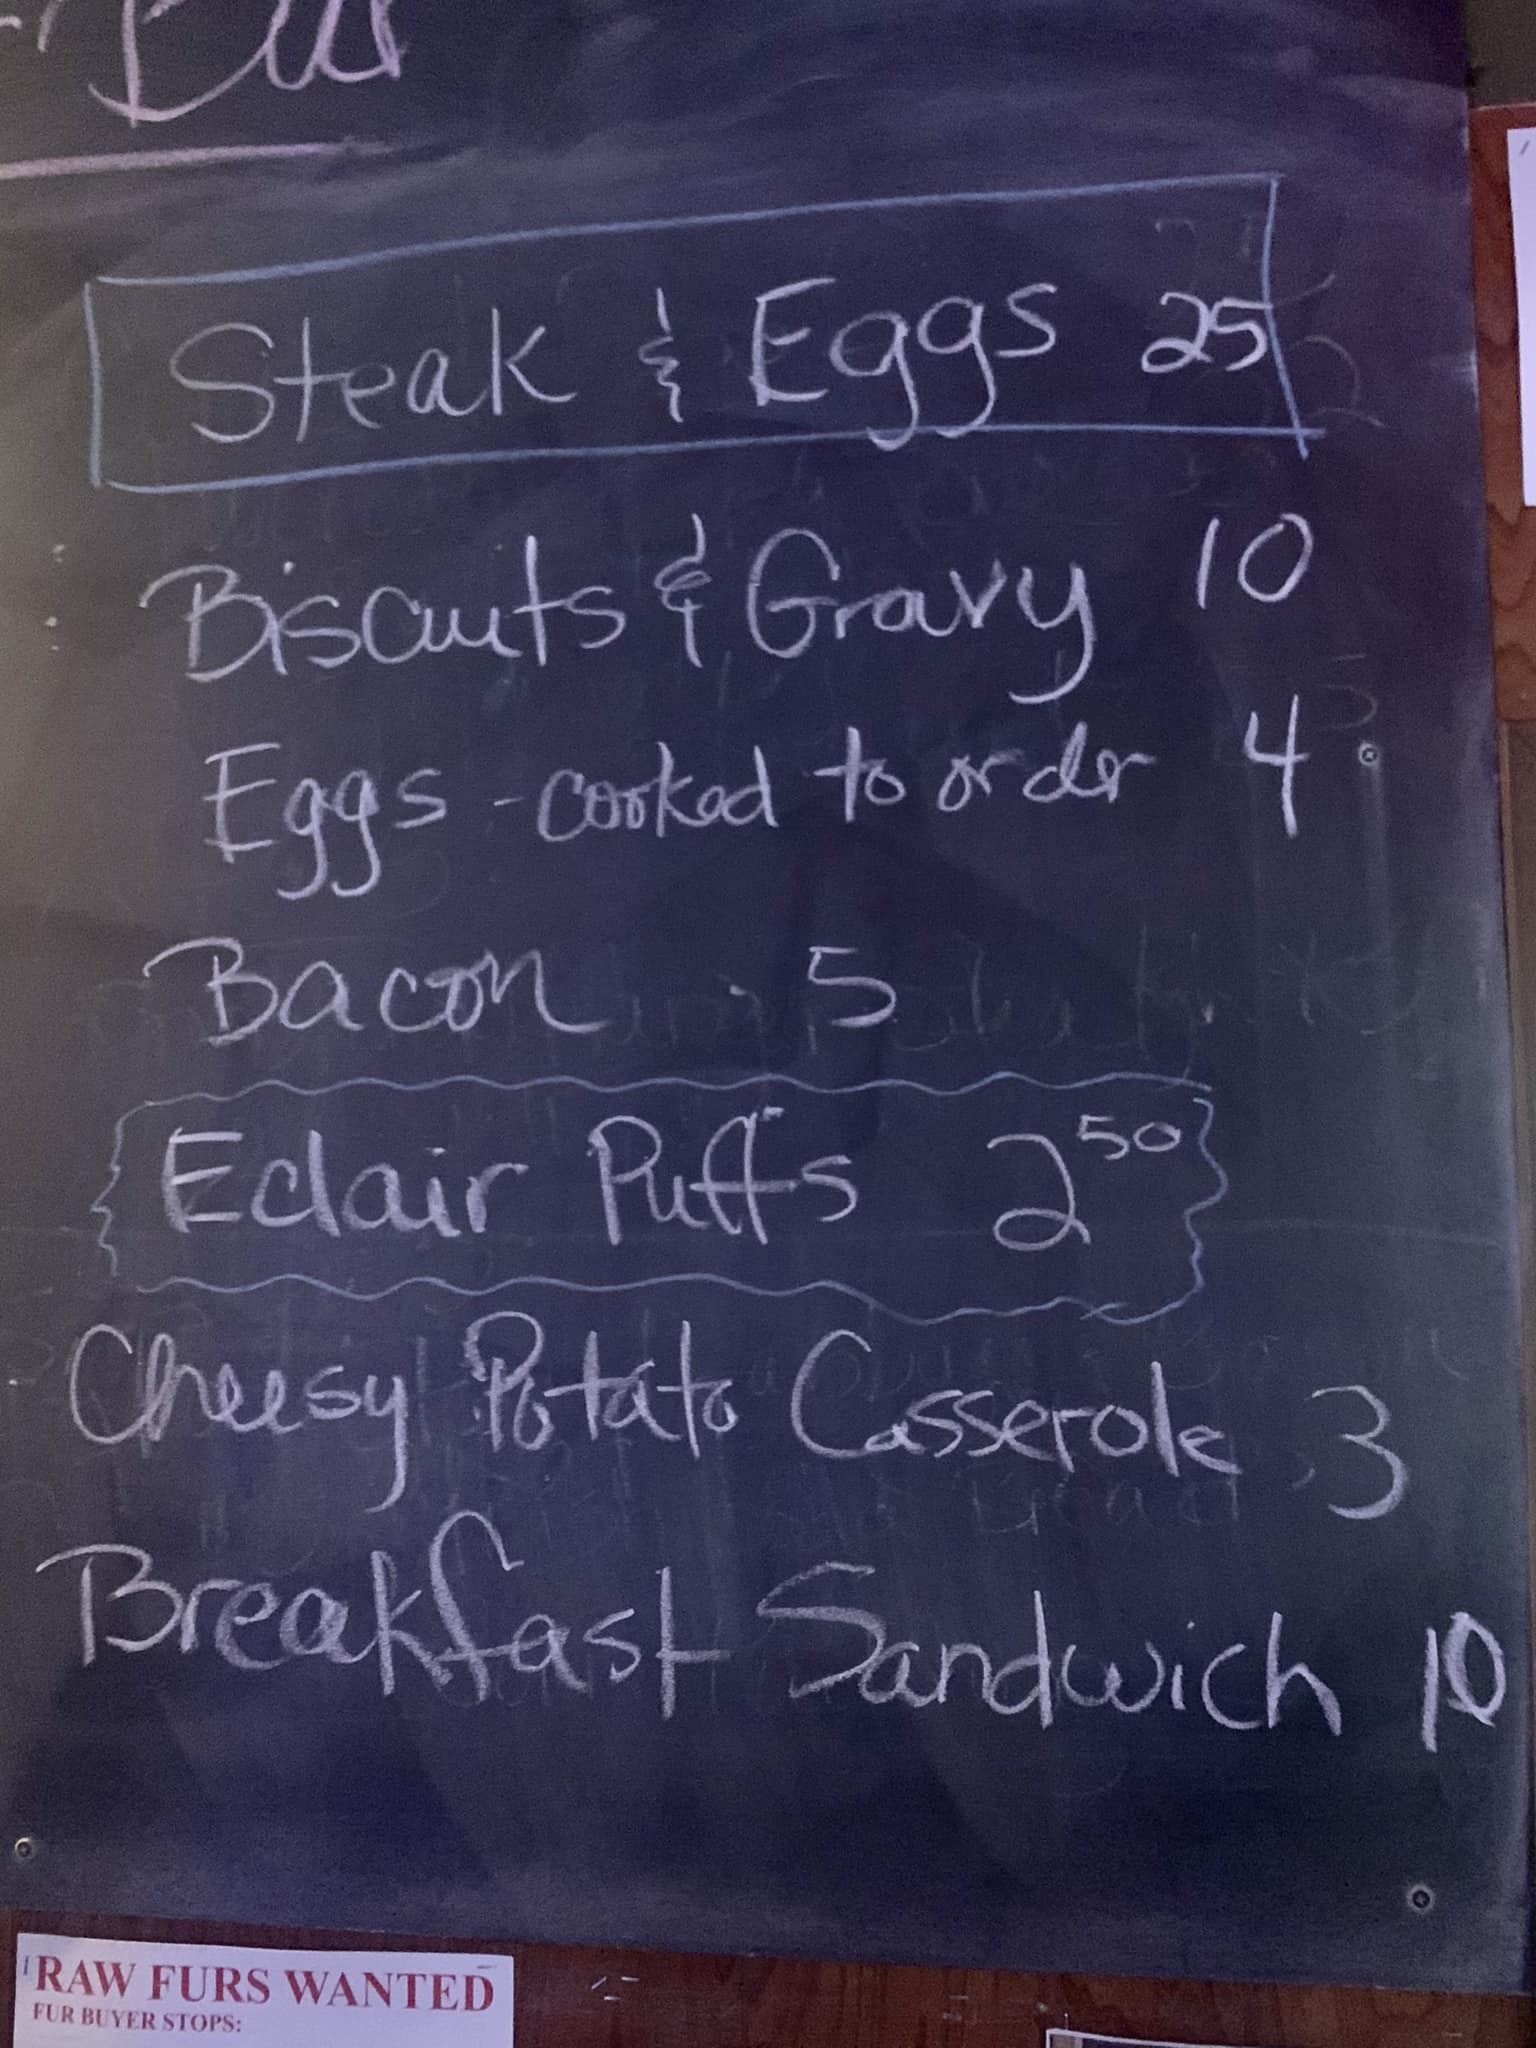 Steak & Eggs 25
Biscuits & Gravy 10
Eggs - cooked to order 4
Bacon 5
Eclair Puffs 2 50
Cheesy Potato Casserole 3
Breakfast Sandwich 10
RAW FURS WANTED
FUR BUYER STOPS: